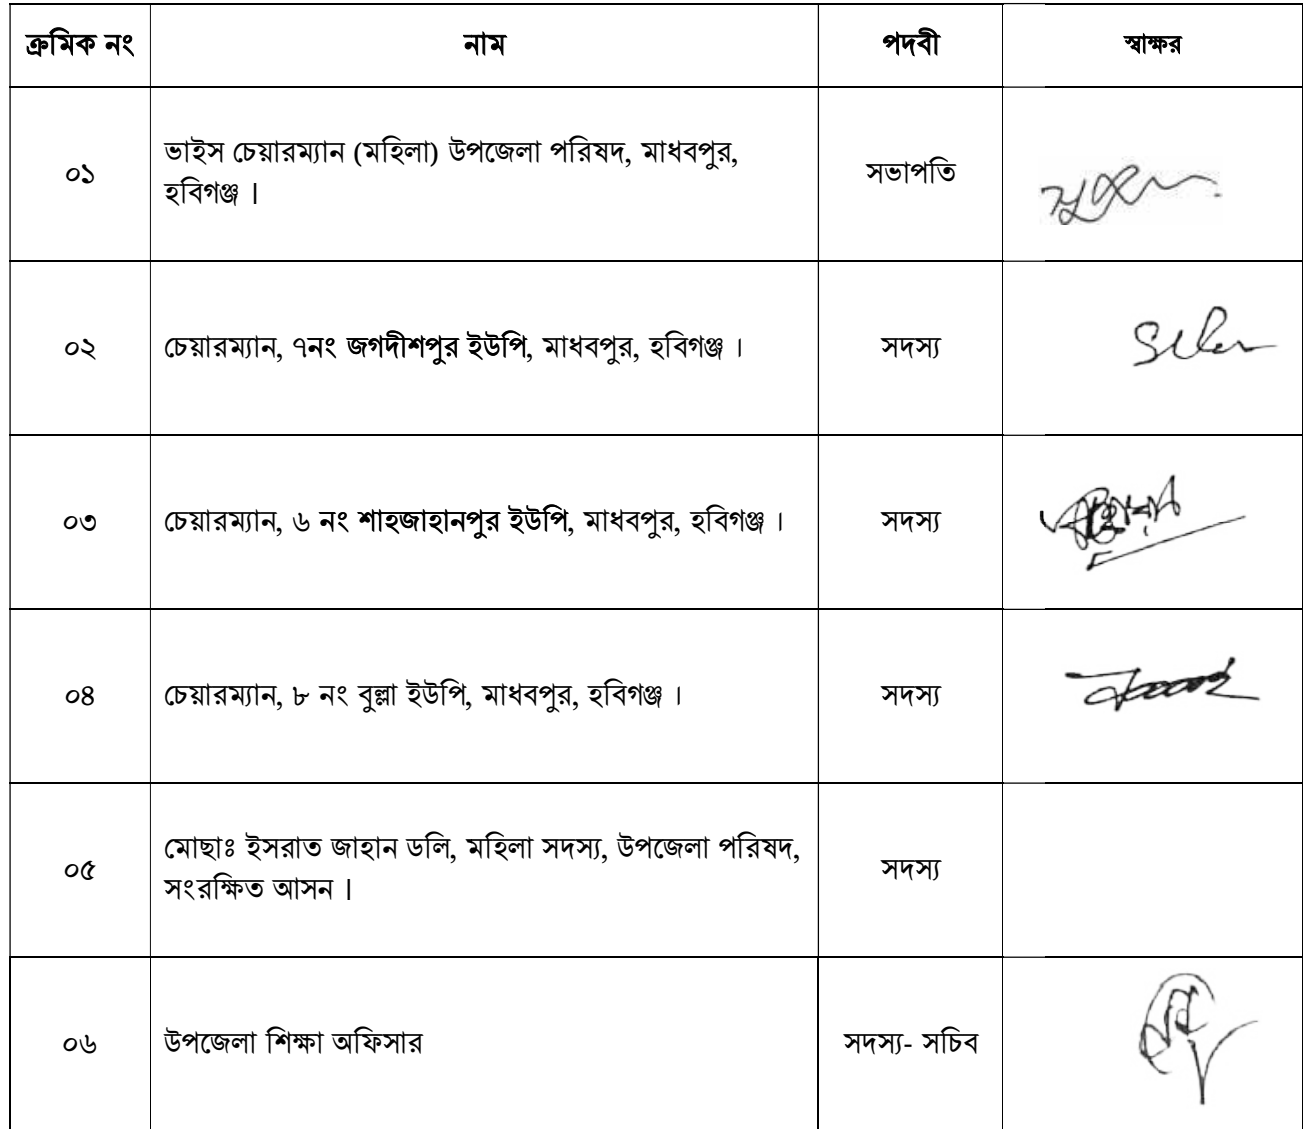 ক্রমিক নং নাম পদবী স্বাক্ষর
০১ ভাইস চেয়ারম্যান (মহিলা) উপজেলা পরিষদ, মাধবপুর, সভাপতি
হবিগঞ্জ ।
০২ চেয়ারম্যান, ৭নং জগদীশপুর ইউপি, মাধবপুর, হবিগঞ্জ । সদস্য
০৩ চেয়ারম্যান, ৬ নং শাহজাহানপুর ইউপি, মাধবপুর, হবিগঞ্জ । সদস্য
০৪ চেয়ারম্যান, ৮ নং বুল্লা ইউপি, মাধবপুর, হবিগঞ্জ । সদস্য
০৫ মোছাঃ ইসরাত জাহান ডলি, মহিলা সদস্য, উপজেলা পরিষদ, সদস্য
সংরক্ষিত আসন ।
০৬ উপজেলা শিক্ষা অফিসার সদস্য- সচিব